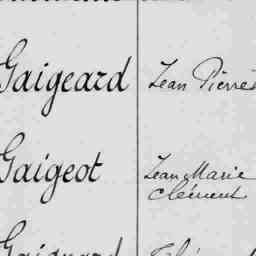 Gaigeard Jean Pierre
Gaigeot Jean Marie
Clément